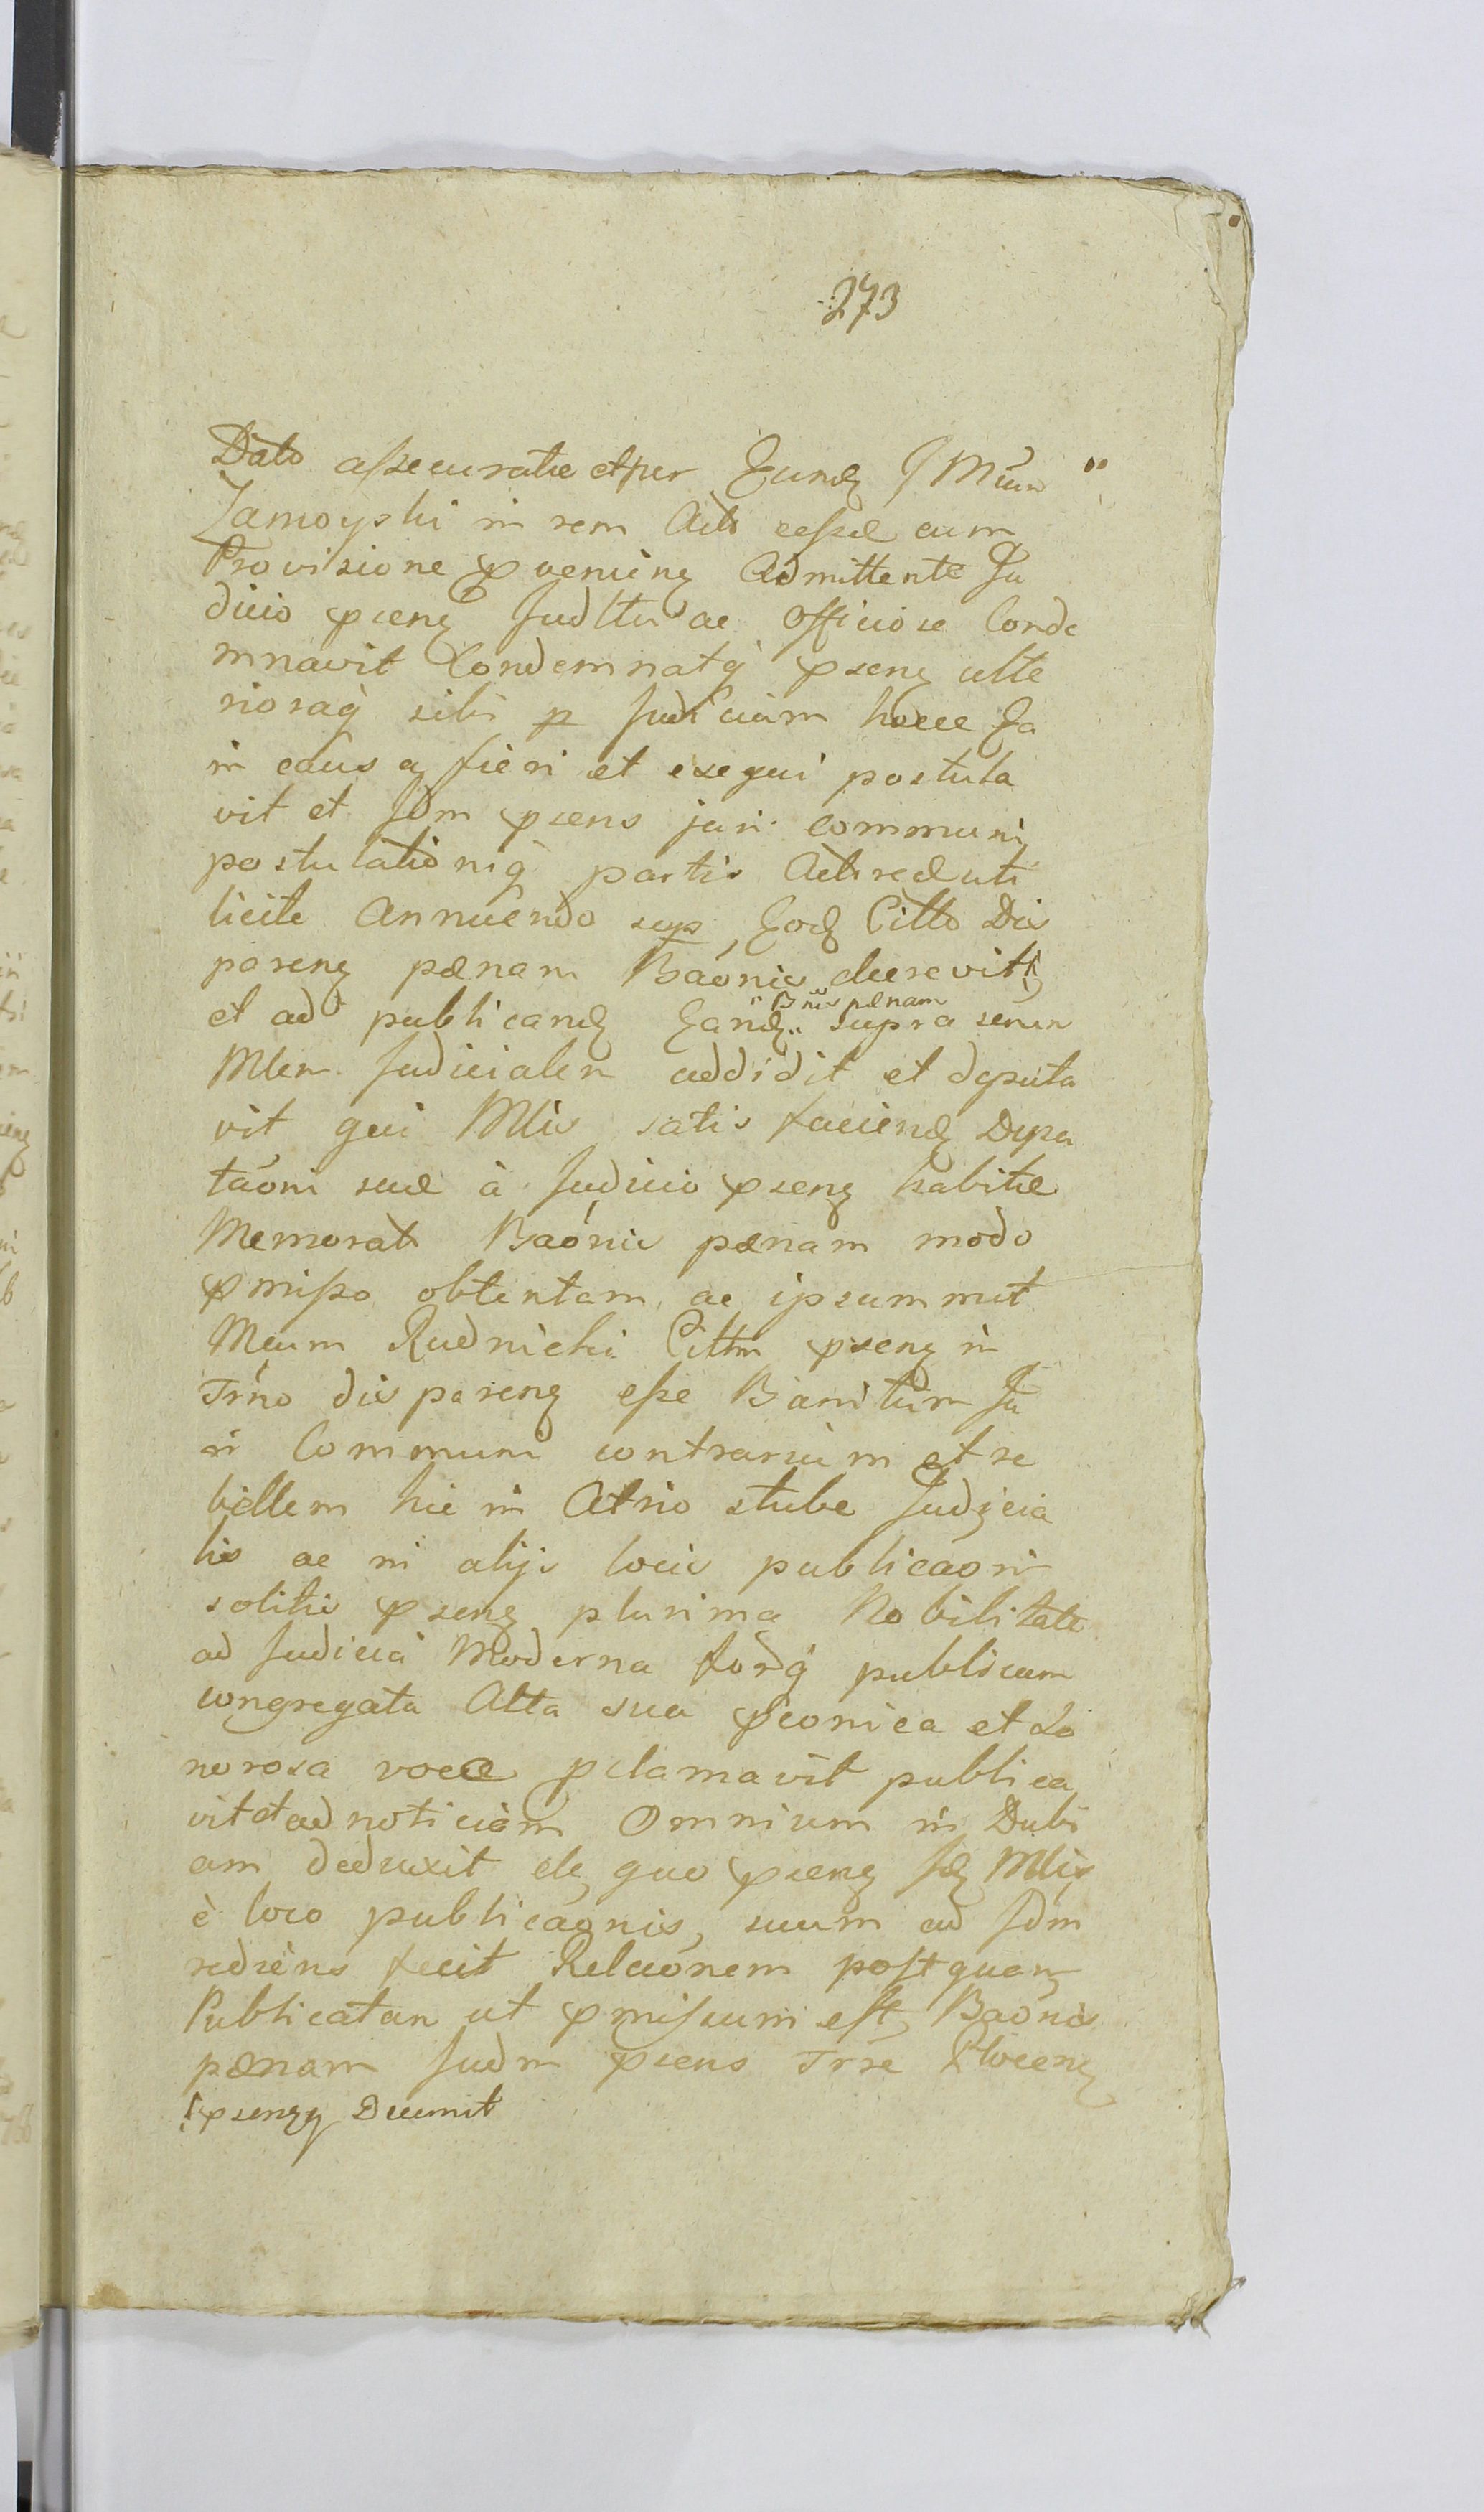 273
Dato assecuratæ et per Eund G Mcum
Zamoyski in rem Acti cessæ cum
Provisione pveniens Admittente Ju
dicio psens Judltr ac Officiose Conde
mnavit Condemnatq psens ulte
rioraq sibi p Judicium hocce Ea
in causa fieri et exequi postula
vit et Jdm psens juri communi
postulationiq partis Actoreæ uti
licite Annuendo sup Eod Citto Dis
parens pænam Baónis decrevit
et ad publicand Eand Bnis pænam supra senen
Mlem Judicialem addidit et deputa
vit qui Mlis satis faciend Depu
taóni suæ à Judicio psens habitæ
Memorat Baónis pænam modo
pmisso obtentam ac ipsummet
Mcum Rudnicki Cittm psens in
Trno disparens esse Banitum Ju
ri Communi contrarium et re
bellem hic in Atrio stubæ Judicia
lis ac in alijs locis publicaoni
solitis psens plurima Nobilitate
ad Judicia Moderna forq publicum
congregata Alta sua pconica et So
norosa voce pclamavit publica
vit et ad noticiam Omnium in Dubi
am deduxit de quo psens Jd Mlis
è loco publicaónis, suum ad Jdm
rediens fecit Relaónem post quam
Publicatam ut pmissum est Baónis
pænam Judm psens Trre Plocens
psensq Decernit